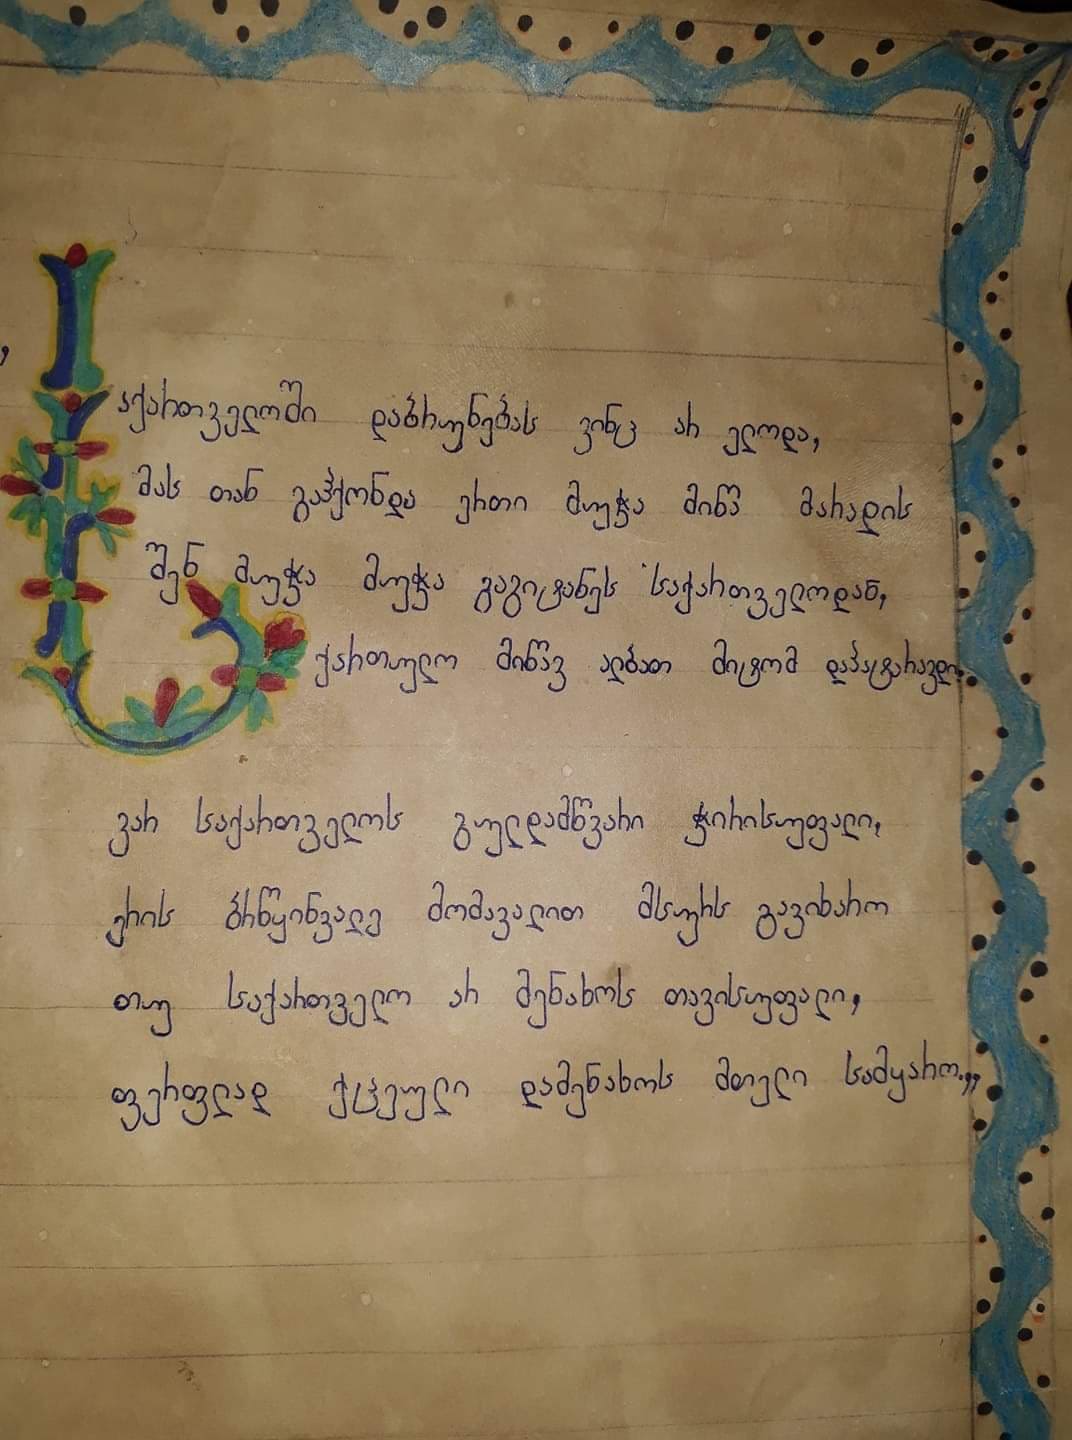 საქართველოში დაბრუნებას ვინც არ ელოდა,
მას თან გაჰქონდა ერთი მუჭა მიწა მარადის
შენ მუჭა მუჭა გაგიტანეს საქართველოდან,
ქართულო მიწავ ალბათ მიტომ დაპატარავდი.
ვარ საქართველოს გულდამწვარი ჭირისუფალი,
ერის ბრწყინვალე მომავალით მსურს გავიხარო
თუ საქართველო არ მენახოს თავისუფალი,
ფერფლად ქცეული დამენახოს მთელი სამყარო.,,